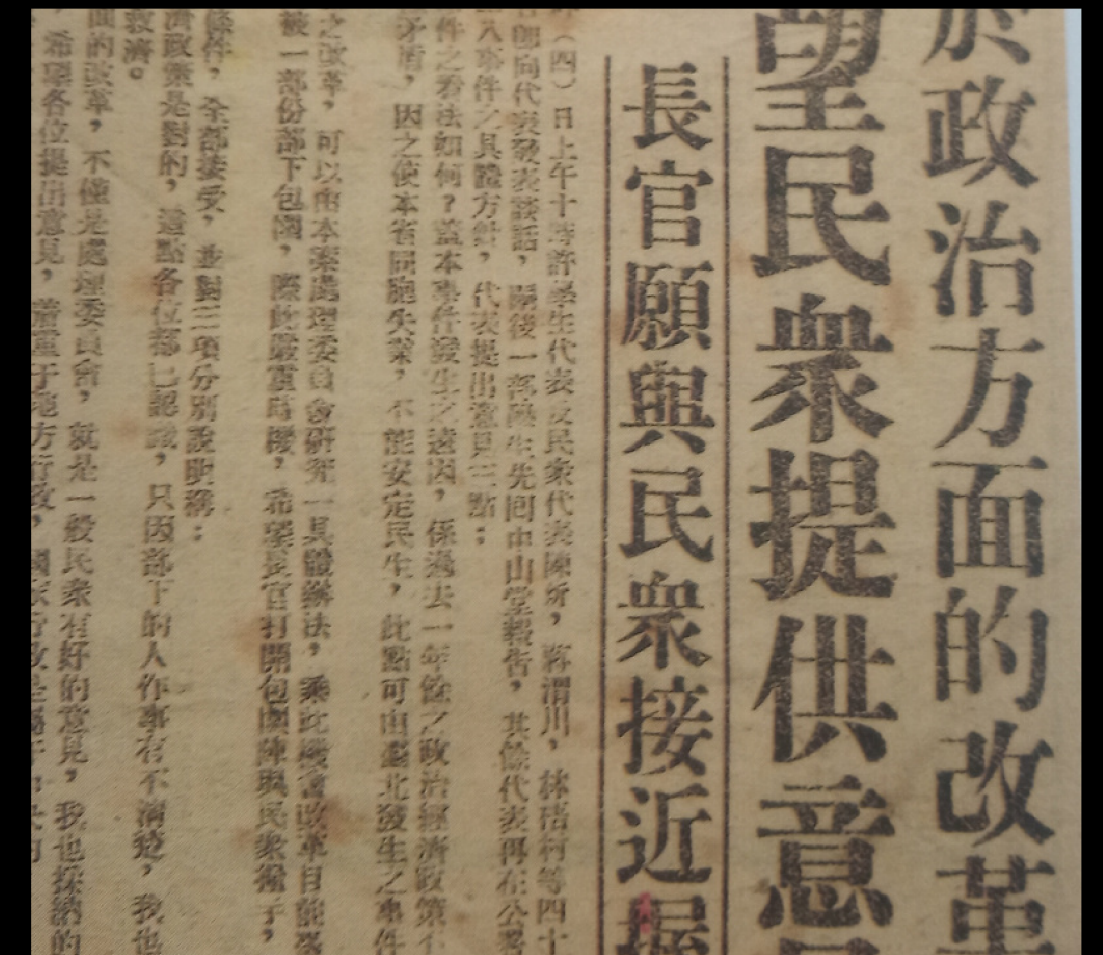 於政治方面的改革
望民衆提供意見
長官願與民衆接近握
(四)日上午十時許學生代表及民衆代表陳炘,蔣渭川,林梧村等四十
向代表發表談話,嗣後一部學生先回中山堂報告,其餘代表再在公署
事件之具體方針,代表提出意見三點;
件之看法如何?蓋本事件發生之遠因,係過去一年餘之政治經濟政策不
矛盾,因之使本省同胞失業,不能安定民生,此點可由臺北發生之事件
之改革,可以由本案處理委員會研究一具體辦法,乘此機會改革目前
被一部份部下包圍,際此嚴重時機,希望長官打開包圍陣與民衆携手,
條件,全部接受,並對三項分別說明稱:
濟政策是對的,這點各位都已認識,只因部下的人作事有不清楚,我也
救濟。
面的改革,不僅是處理委員會,就是一般民衆有好的意見,我也採納的
希望各位提出意見,着重于地方行政,國家行政是屬于中央的